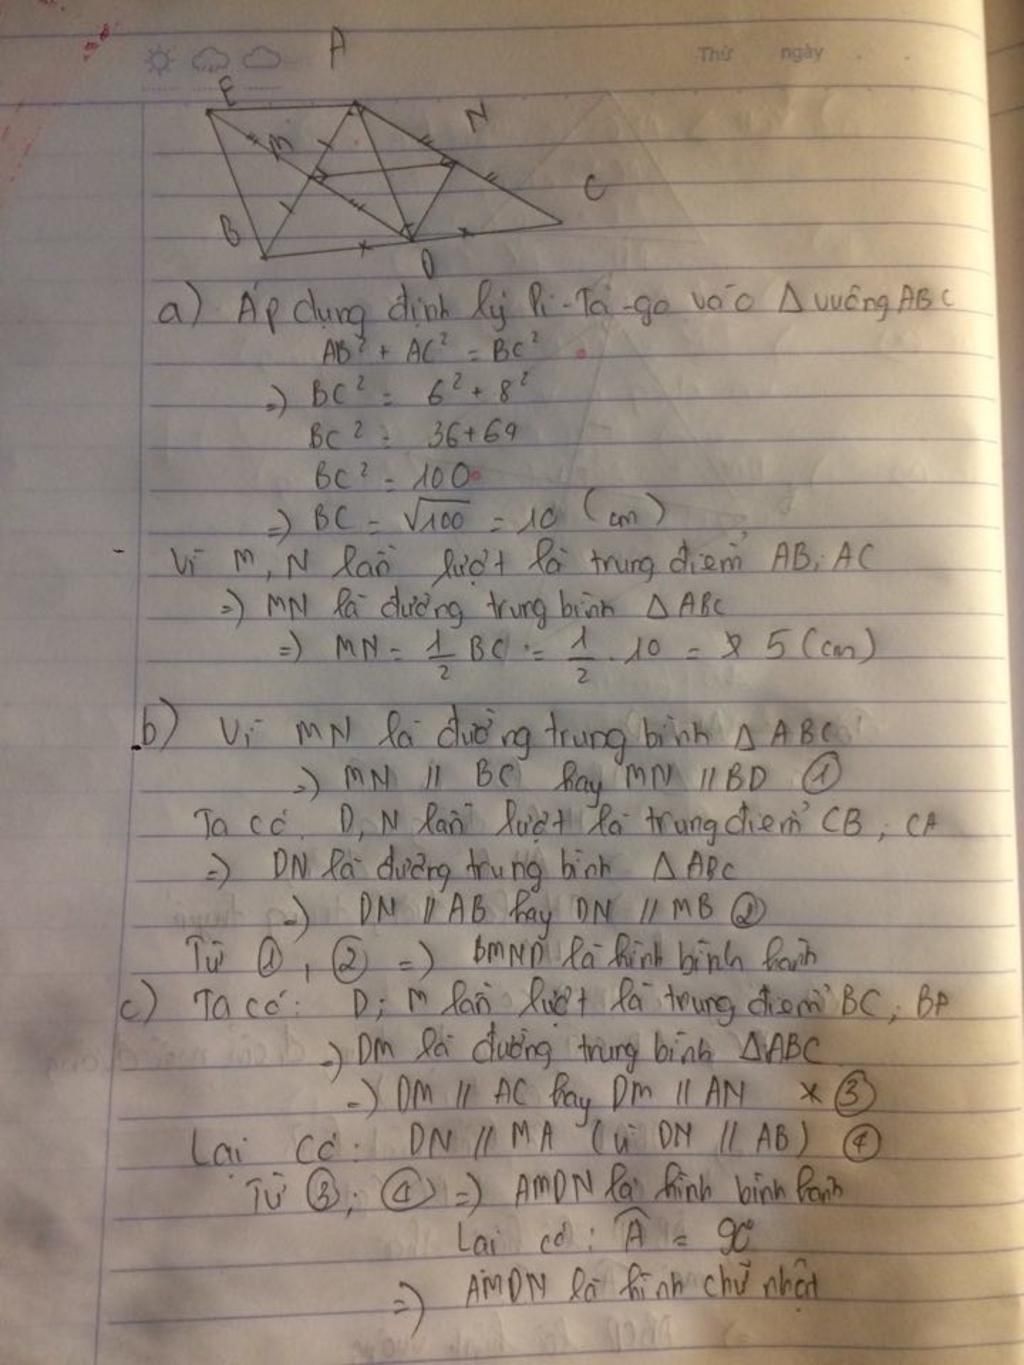 Thứ ngày
A
E
M
N
C
B
D
a) Áp dụng định lý Pi-Ta-go vào Δ vuông ABC
AB² + AC² = BC²
=) BC² = 6² + 8²
BC² = 36+64
BC² = 100
=) BC = √100 = 10 (cm)
Vì M, N lần lượt là trung điểm AB, AC
=) MN là đường trung bình Δ ABC
=) MN = 1/2 BC = 1/2 . 10 = 5 (cm)
b) Vì MN là đường trung bình Δ ABC
=) MN // BC hay MN // BD ①
Ta có D, N lần lượt là trung điểm CB, CA
=) DN là đường trung bình Δ ABC
=) DN // AB hay DN // MB ②
Từ ①, ② =) BMND là hình bình hành
c) Ta có: D; M lần lượt là trung điểm BC, BA
=) DM là đường trung bình ΔABC
=) DM // AC hay DM // AN ③
Lại có: DN // MA (vì DN // AB) ④
Từ ③; ④ =) AMDN là hình bình hành
Lại có: Â = 90°
=) AMDN là hình chữ nhật